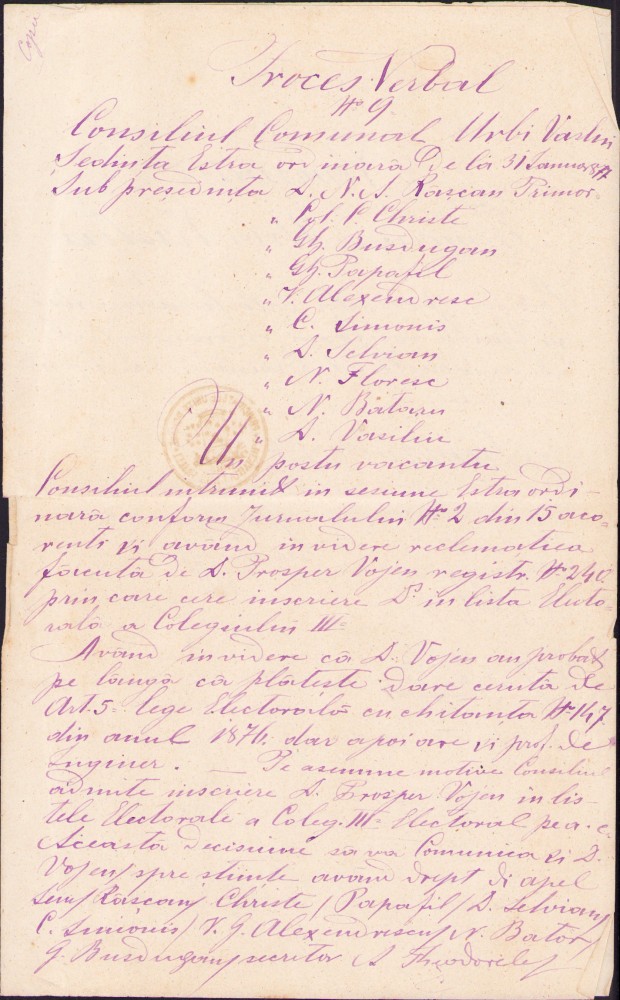 Copie
Proces Verbal
No 9
Consiliul Comunal Urbi Vaslui
Sedinta Estra ordinară De la 31 Januar 877
Sub preşedinţa D. N. A. Rascan Primor-
" P. Christe
" Gh. Busdugan
" Gh. Papafil
" V. Alexendresc
" C. Simonis
" D. Selvian
" N. Floresc
" N. Bataru
" D. Vasiliu
Un postu vacantu
Consiliul intrunit in sesiune Estra ordi-
nară conform Jurnalului No 2 din 15 aco-
renti şi avănd in videre reclematica
făcută de D. Prosper Vojen registr. No 240
prin care cere inscriere D. in lista Electo-
rală a Colegiului III
Avănd in videre că D. Vojen au probat
pe langă că plăteşte dare ceruta de
Art. 5 lege Electorală cu chitanta No 147
din anul 1876. dar apoi are şi prof. de
Enginer. — Pe asemine motive Consiliul
admite inscriere D. Prosper Vojen in lis-
tele Electorale a Coleg. III Electoral pe a. c.
Aceasta Decisiune sa va Comunica şi D.
Vojen spre stiinte avănd drept di apel
Rascan / Christe / Papafil / D. Selvian /
C. Simionis / V. G. Alexendrescu / N. Bator /
G. Busdugan / secritor A Theodorel